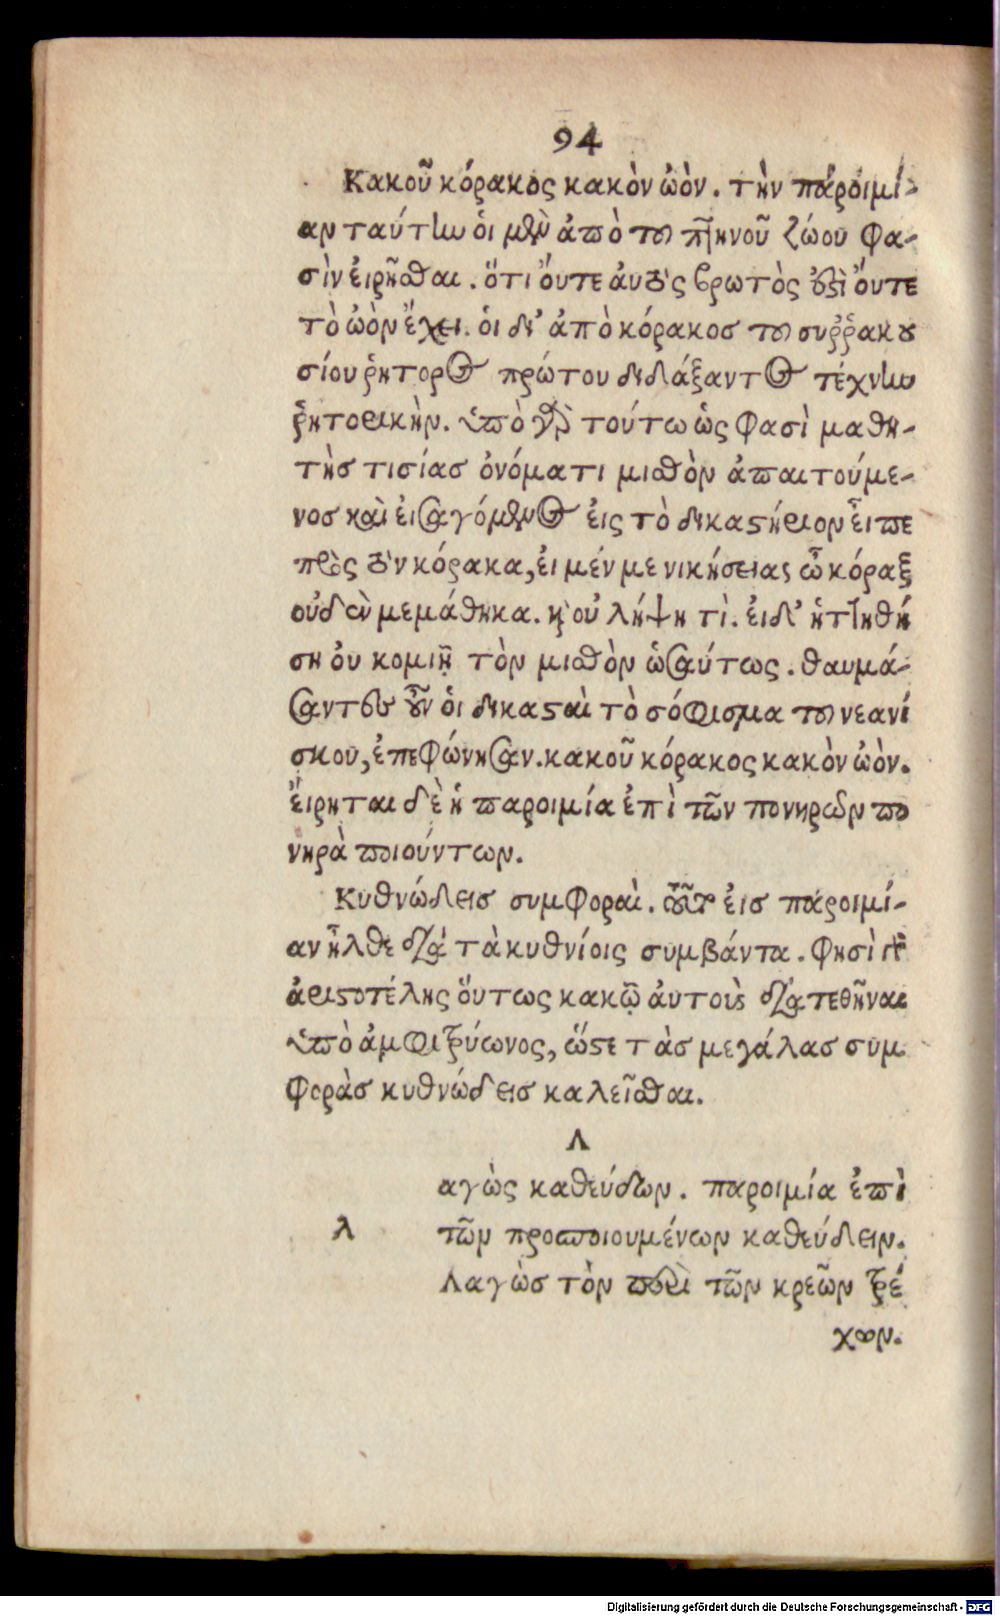 94
Κακοῦ κόρακος κακὸν ὠόν. τὴν παροιμί-
αν ταύτην ὁι μὲν ἀπὸ του πτηνοῦ ζώου φα-
σὶν ἐιρῆσθαι. ὅτι ὄυτε ἀυτὸς βρωτὸς ἐστὶ ὄυτε
τὸ ὠὸν ἔχει. ὁι δ' ἀπὸ κόρακοσ του συῤῥακου
σίου ῥήτορος πρώτου διδάξαντος τέχνην
ῥητορικὴν. ὑπὸ γὰρ τούτω ὡς φασὶ μαθη-
τὴσ τισίασ ὀνόματι μισθὸν ἀπαιτούμε-
νοσ καὶ ἐισαγόμενος ἐις τὸ δικαστήριον εἶπε
πρὸς τὸν κόρακα, ἐι μέν με νικήσειας ὦ κόραξ
οὐδὲν μεμάθηκα. καὶ οὐ λήψη τὶ. ἐι δ' ἡττηθή
ση ὀυ κομιῇ τὸν μισθὸν ὡσαύτως. θαυμά-
σαντες οὖν ὁι δικασταὶ τὸ σόφισμα του νεανί
σκου, ἐπεφώνησαν. κακοῦ κόρακος κακὸν ὠόν.
ἔιρηται δὲ ἡ παροιμία ἐπὶ τῶν πονηρων πο
νηρὰ ποιούντων.
Κυθνώδεισ συμφοραὶ. ἐισ παροιμί-
αν ἦλθε διὰ τὰ κυθνίοις συμβάντα. Φησὶ γὰρ
ἀριστοτέλης ὅυτως κακῶς ἀυτοὺς διατεθῆναι
ὑπὸ ἀμφιτρύωνος, ὥστε τὰσ μεγάλασ συμ
φορὰσ κυθνώδεισ καλεῖσθαι.
Λ
αγὼς καθεύδων. παροιμία ἐπὶ
λ τῶν προσποιουμένων καθεύδειν.
Λαγὼσ τὸν περὶ τῶν κρεῶν τρέ
χων.
Digitalisierung gefördert durch die Deutsche Forschungsgemeinschaft - DFG